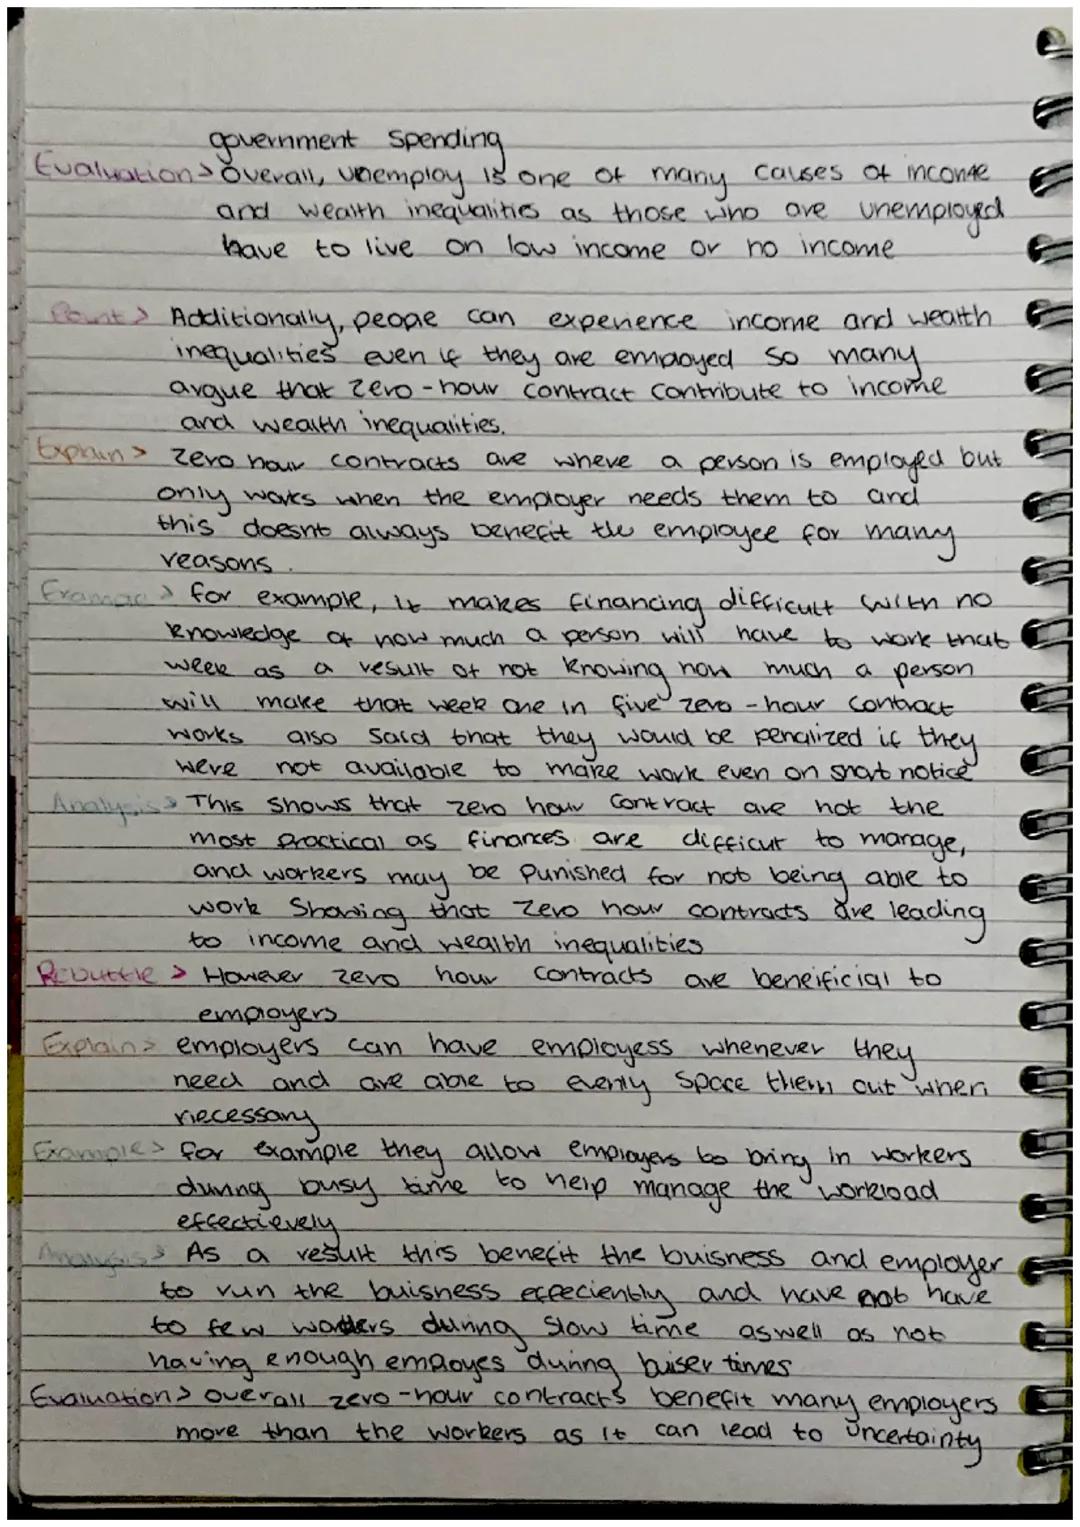 government Spending
Evaluation > Overall, unemploy is one of many causes of income
and wealth inequalities as those who are unemployed
have to live on low income or no income
Point > Additionally, people can experience income and wealth
inequalities even if they are employed so many
argue that zero-hour contract contribute to income
and wealth inequalities.
Explain > Zero hour contracts are where a person is employed but
only works when the employer needs them to and
this doesnt always benefit the employee for many
reasons.
Example > for example, it makes financing difficult with no
knowledge of how much a person will have to work that
week as a result of not knowing how much a person
will make that week one in five zero-hour contract
works also said that they would be penalized if they
were not available to make work even on short notice
Analysis > This shows that zero hour contract are not the
most practical as finances are difficult to manage,
and workers may be punished for not being able to
work showing that zero hour contracts are leading
to income and wealth inequalities
Rebuttle > However zero hour contracts are beneificial to
employers
Explain > employers can have employess whenever they
need and are able to evenly space them out when
necessary
Example > for example they allow employers to bring in workers
during busy time to help manage the workload
effectievely
Analysis > As a result this benefit the buisness and employer
to run the buisness effeciently and have not have
to few workers during slow time aswell as not
having enough employes during buiser times
Evaluation > overall zero-hour contracts benefit many employers
more than the workers as it can lead to uncertainty